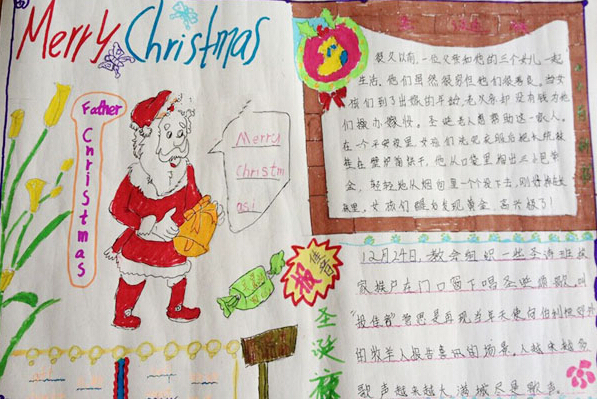 Merry Christmas
Father
Christmas
Merry
Christm
as!
很久以前,一位父亲和他的三个女儿一起
生活.他们虽然很穷但他们很善良。当女
孩们到了出嫁的年龄,老父却没有钱为他
们操办嫁妆。圣诞老人愿帮助这一家人。
在一个平安夜里,女孩们洗完衣服后把长统袜
挂在壁炉前烘干,他从口袋里掏出三小包黄
金,轻轻地从烟囱里一个个投下去,刚好掉在长
袜里,女孩们醒后发现黄金,高兴极了!
报佳音
圣诞夜
12月24日,教会组织一些圣诗班挨
家挨户在门口留下唱圣诞颂歌,叫
"报佳音"意思是再现当年天使向伯利恒郊外
的牧羊人报告喜讯的场景,人越来越多
歌声越来越大,满城尽是歌声。